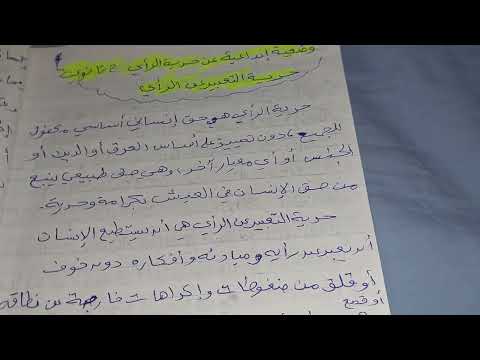 وضعية إبداعية عن حرية الرأي 2 ثانوي
حرية التعبير عن الرأي
حرية الرأي هو حق إنساني أساسي مكفول
للجميع، دون تمييز على أساس العرق أو الدين أو
الجنس أو أي معيار آخر، وهي حق طبيعي ينبع
من حق الإنسان في العيش بكرامة وحرية.
حرية التعبير عن الرأي هي أن يستطيع الإنسان
أن يعبر عن رأيه ومبادئه وأفكاره دون خوف
أو قلق من ضغوطات وإكراهات خارجة عن نطاقه
أو قمع